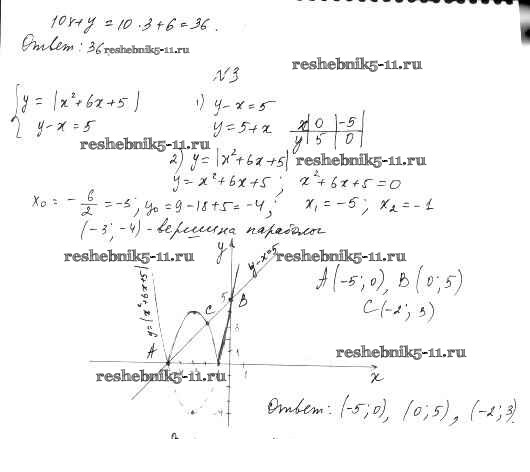 10x+y = 10·3+6 = 36.
Ответ: 36 reshebnik5-11.ru
reshebnik5-11.ru
№3
{ y = |x²+6x+5|
y-x = 5
1) y-x = 5
y = 5+x
x | 0 | -5
y | 5 | 0
reshebnik5-11.ru
2) y = |x²+6x+5| reshebnik5-11.ru
y = x²+6x+5 ; x²+6x+5 = 0
x₀ = -6/2 = -3; y₀ = 9-18+5 = -4; x₁ = -5; x₂ = -1
(-3; -4) - вершина параболы
reshebnik5-11.ru
reshebnik5-11.ru
y
y-x=5
y = |x²+6x+5|
5
B
C
A
A(-5; 0), B(0; 5)
C(-2; 3)
reshebnik5-11.ru
reshebnik5-11.ru
1
x
-4
Ответ: (-5; 0), (0; 5), (-2; 3).